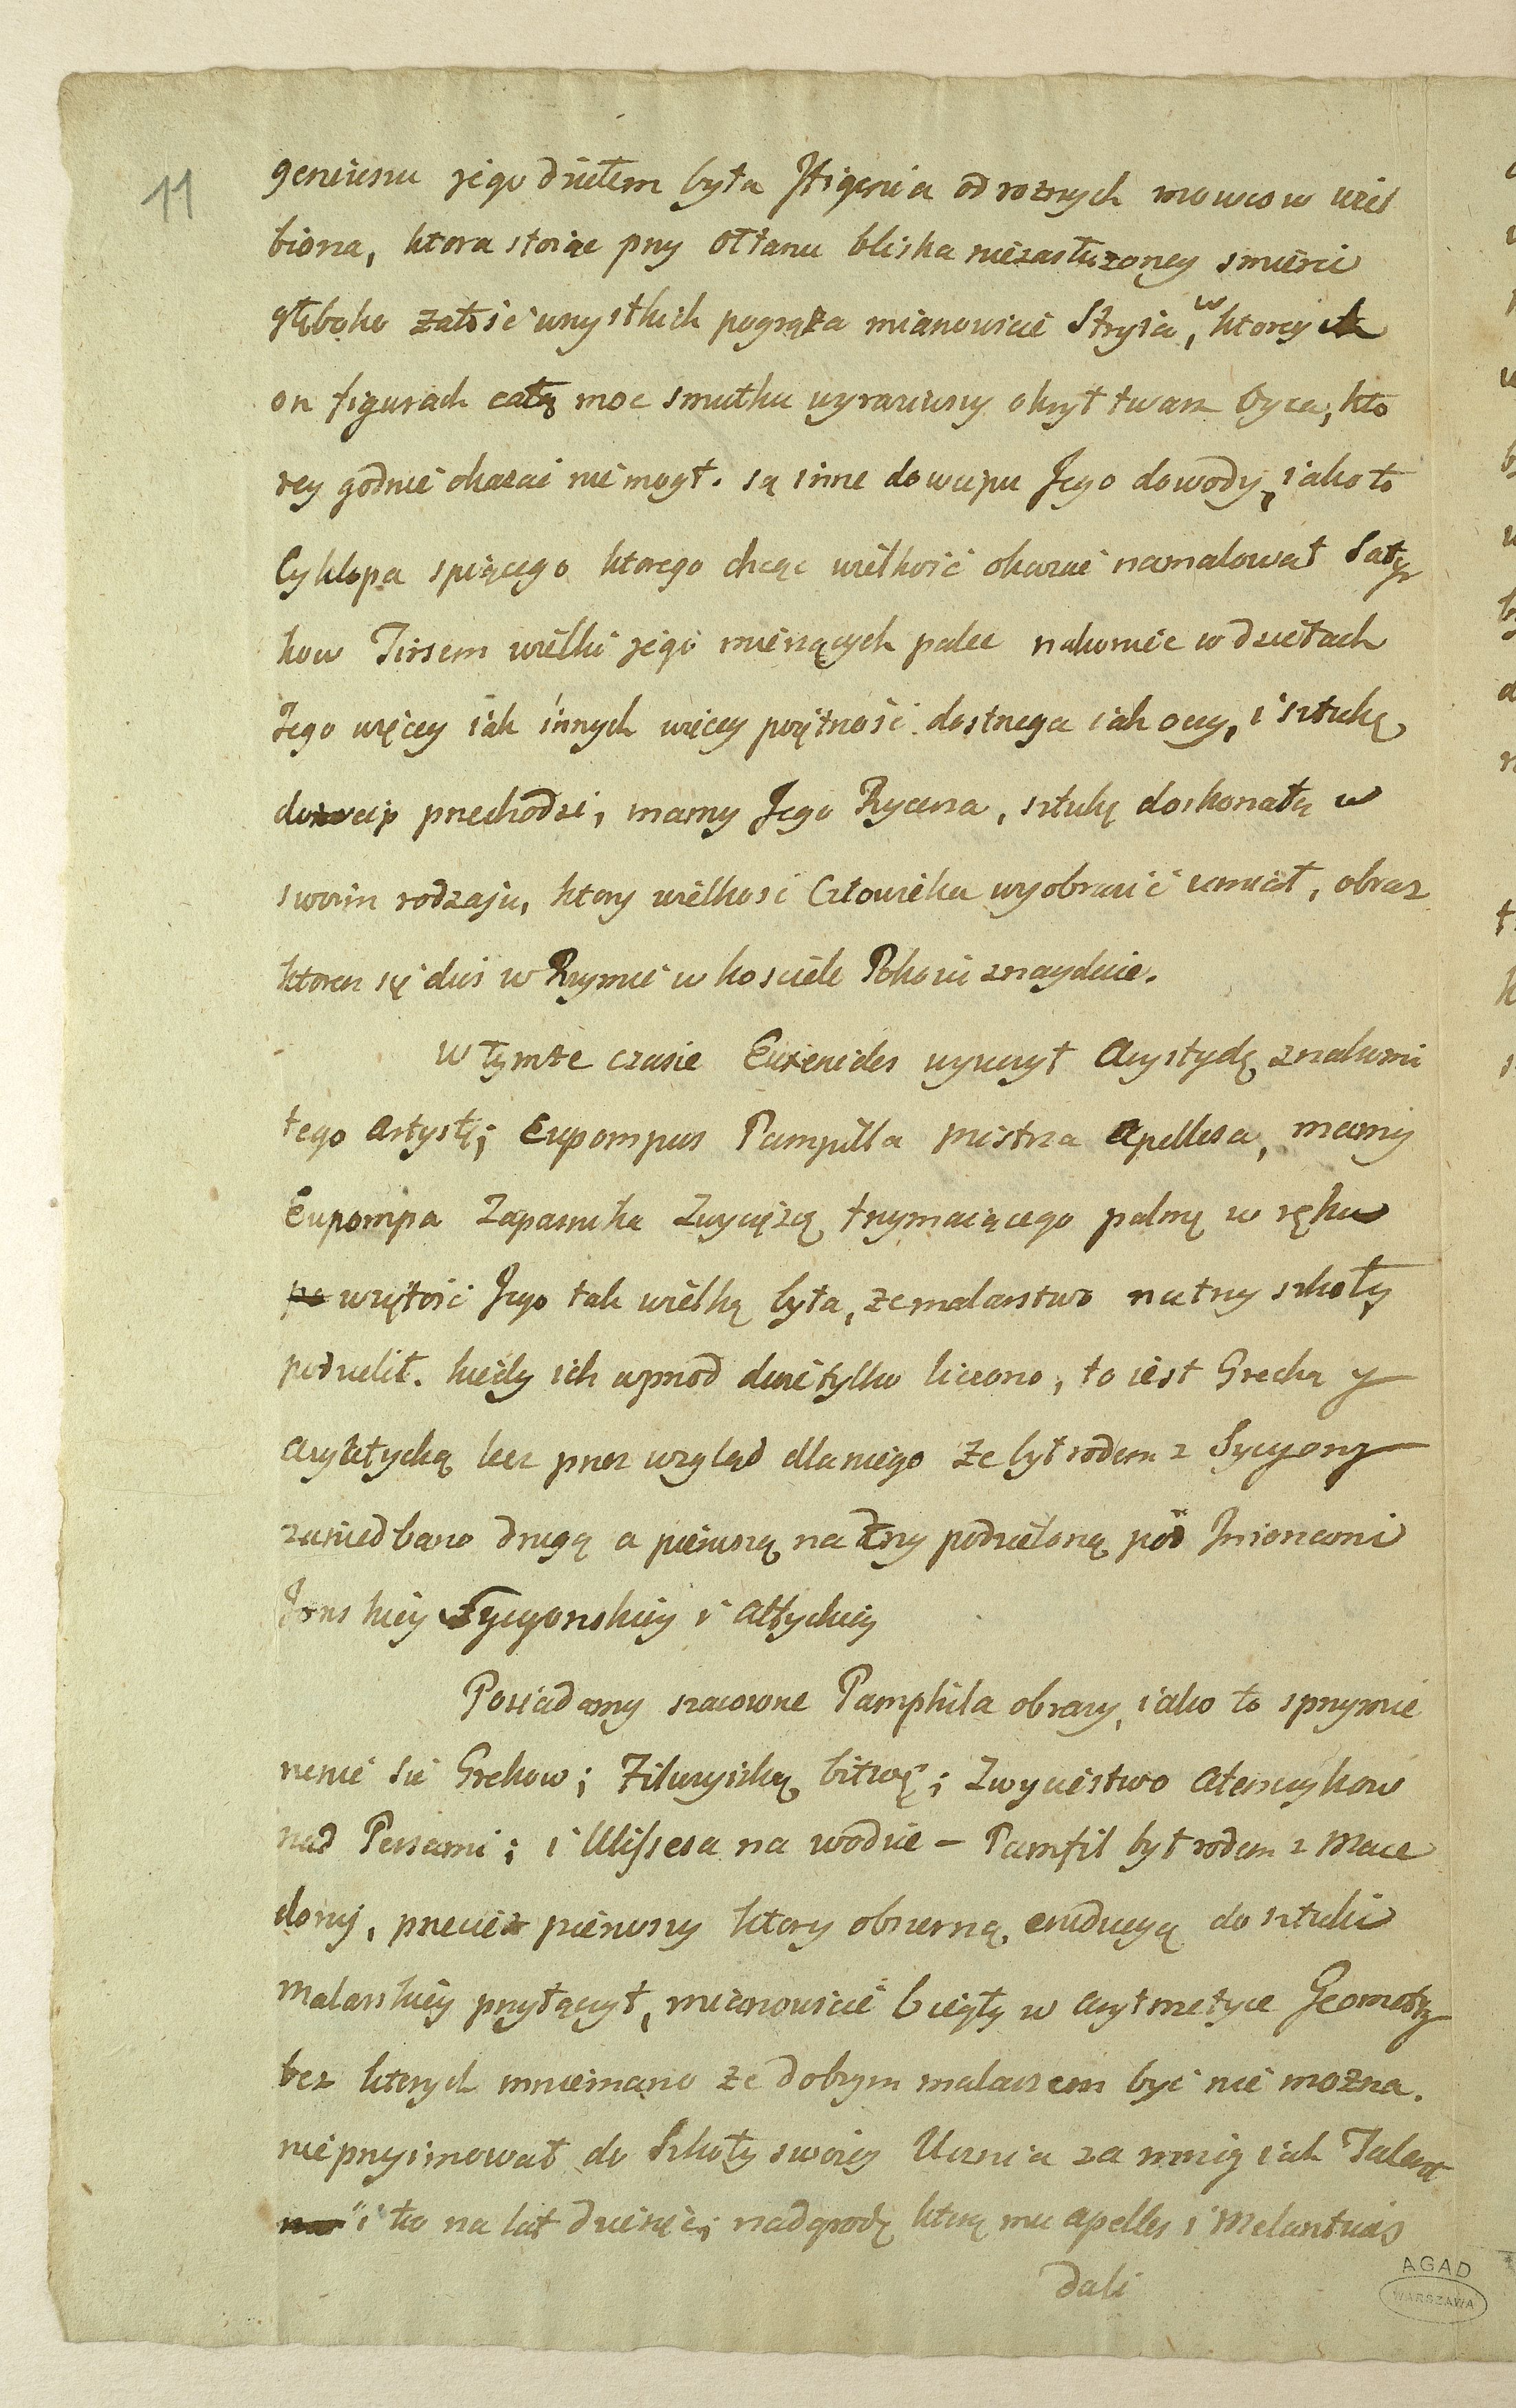 11
geniuszu jego dziełem była Ifigenia od roznych mowcow uwiel
biona, ktora stoiąc przy Ołtarzu bliska niezasłużoney smierci
głęboko żałość wszystkich pogrąża mianowicie Stryia, w ktorych
on figurach całą moc smutku wyraziwszy okrył twarz Oyca, kto
rey godnie okazać nie mogł. są inne dowcipu Jego dowody, iako to
Cyklopa spiącego ktorego chcąc wielkość okazać namalował Saty
kow Tirsem wielki jego mierzących palec nakoniec w dziełach
Jego więcey iak innych więcey poiętność dostrzega iak oczy, i sztukę
dowcip przechodzi, mamy Jego Rycerza, sztukę doskonałą w
swoim rodzaju, ktory wielkosć Człowieka wyobrazić umiał, obraz
ktoren się dziś w Rzymie w kosciele Pokoiu znayduie.
W tymże czasie Euxenides wyuczył Arystydę znakomi
tego Artystę; Eupompus Pampilla mistrza Apellesa, mamy
Eupompa Zapasnika Zwycięzcę trzymaiącego palmę w ręku
wziętość Jego tak wielką była, że malarstwo na trzy szkoły
podzielił. kiedy ich wprzod dwie tylko liczono, to iest Grecką y
Azyatycką lecz przez wzgląd dla niego że był rodem z Sycyony
zaniedbano drugą a pierwszą na trzy podzieloną pod Imionami
Jonskiey Sycyonskiey i Attyckiey
Posiadamy szacowne Pamphila obrazy, iako to sprzymie
rzenie sie Grekow; Filuzyiską bitwę; Zwyciestwo Atenczykow
nad Persami; i Ulissesa na wodzie – Pamfil był rodem z Mace
donij, przecież pierwszy ktory obszerną erudycyą do sztuki
Malarskiey przyłączył, mianowicie biegły w Arytmetyce Geometry
bez ktorych mniemano że dobrym malarzem być nie można.
nieprzyimował do Szkoły swoiey Ucznia za mniey iak Talent
i to na lat dziesięć; nadgrodę ktorą mu Apelles i Melantius
dali
AGAD
WARSZAWA